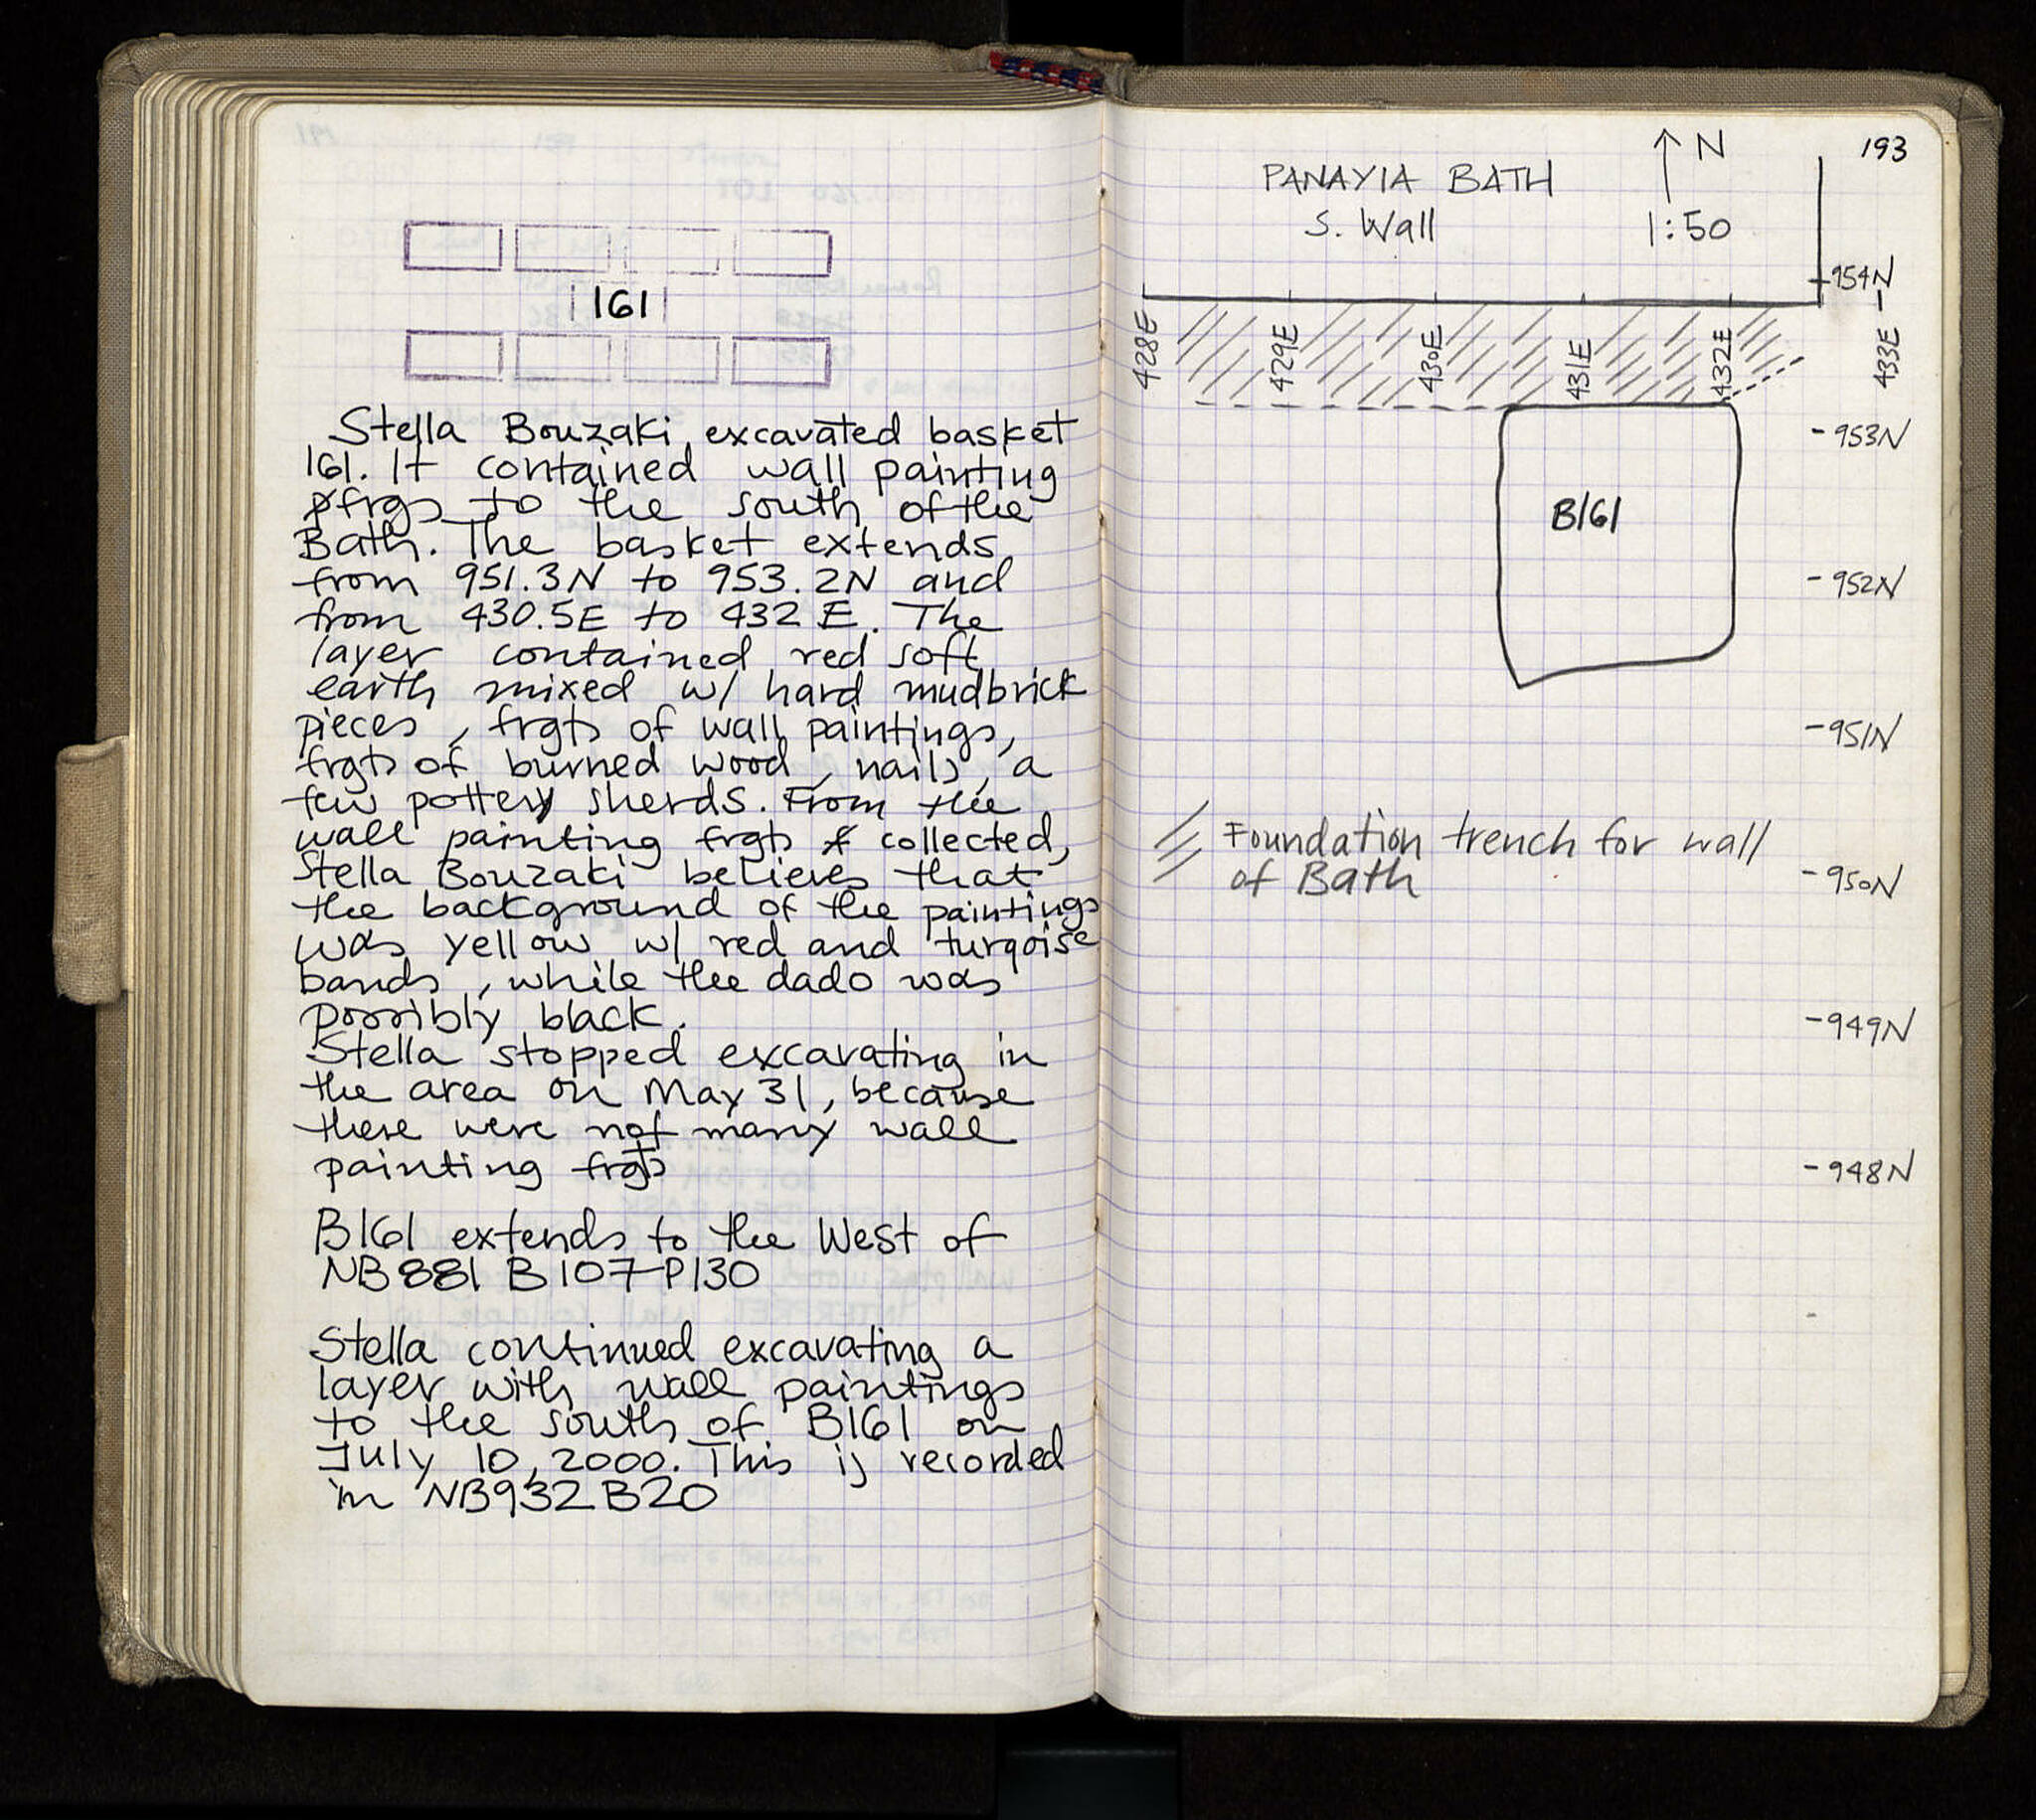 161
Stella Bouzaki excavated basket
161. It contained wall painting
frgs to the south of the
Bath. The basket extends
from 951.3N to 953.2N and
from 430.5E to 432 E. The
layer contained red soft
earth mixed w/ hard mudbrick
pieces, frgts of wall paintings,
frgts of burned wood, nails, a
few pottery sherds. From the
wall painting frgts collected,
Stella Bouzaki believes that
the background of the paintings
was yellow w/ red and turqoise
bands, while the dado was
possibly black.
Stella stopped excavating in
the area on May 31, because
there were not many wall
painting frgts
B161 extends to the West of
NB881 B107-P130
Stella continued excavating a
layer with wall paintings
to the south of B161 on
July 10, 2000. This is recorded
in NB932 B20
193
PANAYIA BATH
S. Wall
N
1:50
954N
428E
429E
430E
431E
432E
433E
953N
B161
952N
951N
Foundation trench for wall
of Bath
950N
949N
948N